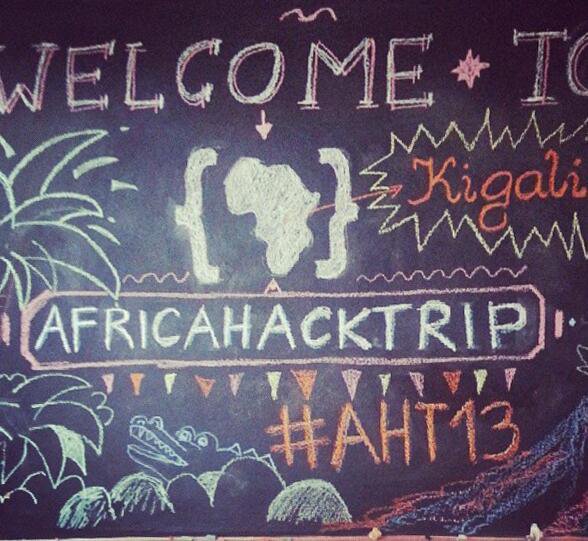 WELCOME * TO
{ }
Kigali
AFRICAHACKTRIP
#AHT13